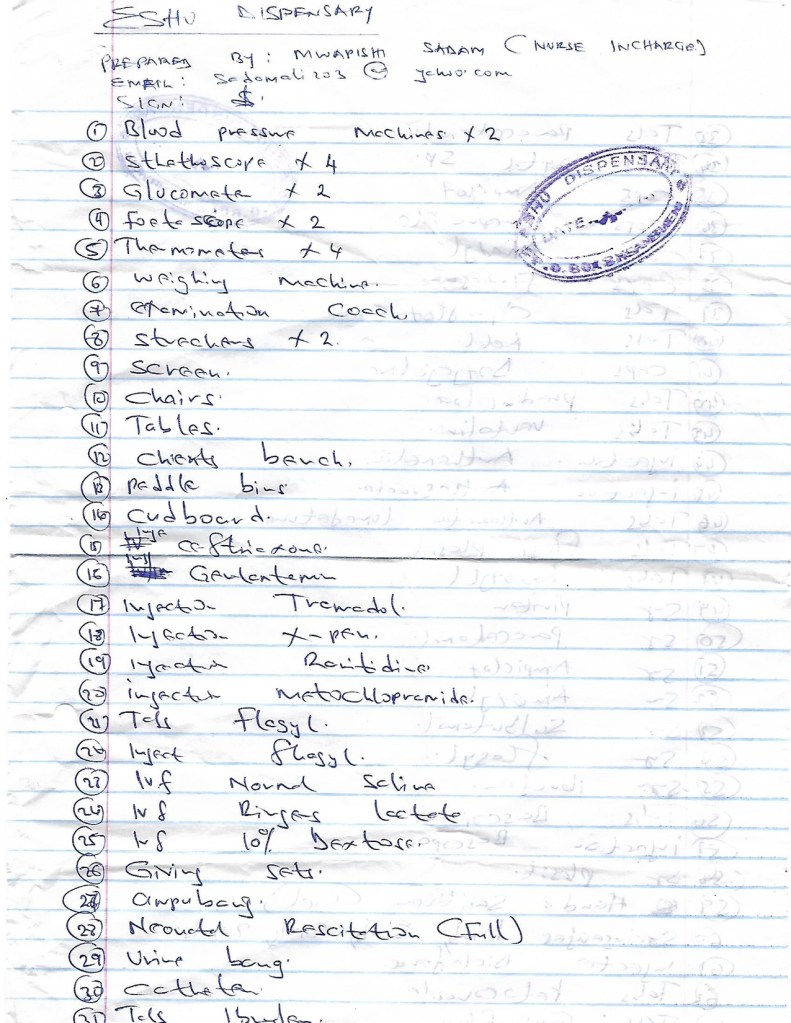 ESHU DISPENSARY
PREPARED BY: MWAPISHI SADAM (NURSE INCHARGE)
EMAIL: Sadamali203 @ yahoo.com
SIGN:
ESHU DISPENSARY
DATE
P.O. BOX 8 MSAMBWENI
1 Blood pressure Machines x 2
2 Sthethoscope x 4
3 Glucometa x 2
4 foetoscope x 2
5 Thermometers x 4
6 weighing machine.
7 examination Coach
8 strechers x 2.
9 Screen.
10 Chairs.
11 Tables.
12 Clients bench.
13 paddle bins
14 Cudboard.
15 Inje ceftriaxone.
16 Inj Gentantemin
17 Injection Tramadol.
18 Injection X-pen.
19 Injection Ranitidine.
20 injection metochlopramide.
21 Tabs flagyl.
22 Inject flagyl.
23 Ivf Normal Salina
24 Ivf Ringers lactate
25 Ivf 10% Dextose.
26 Giving sets.
27 ampubang.
28 Neonatal Rescitation (Full)
29 Urine bang.
30 Catheter.
31 Tabs